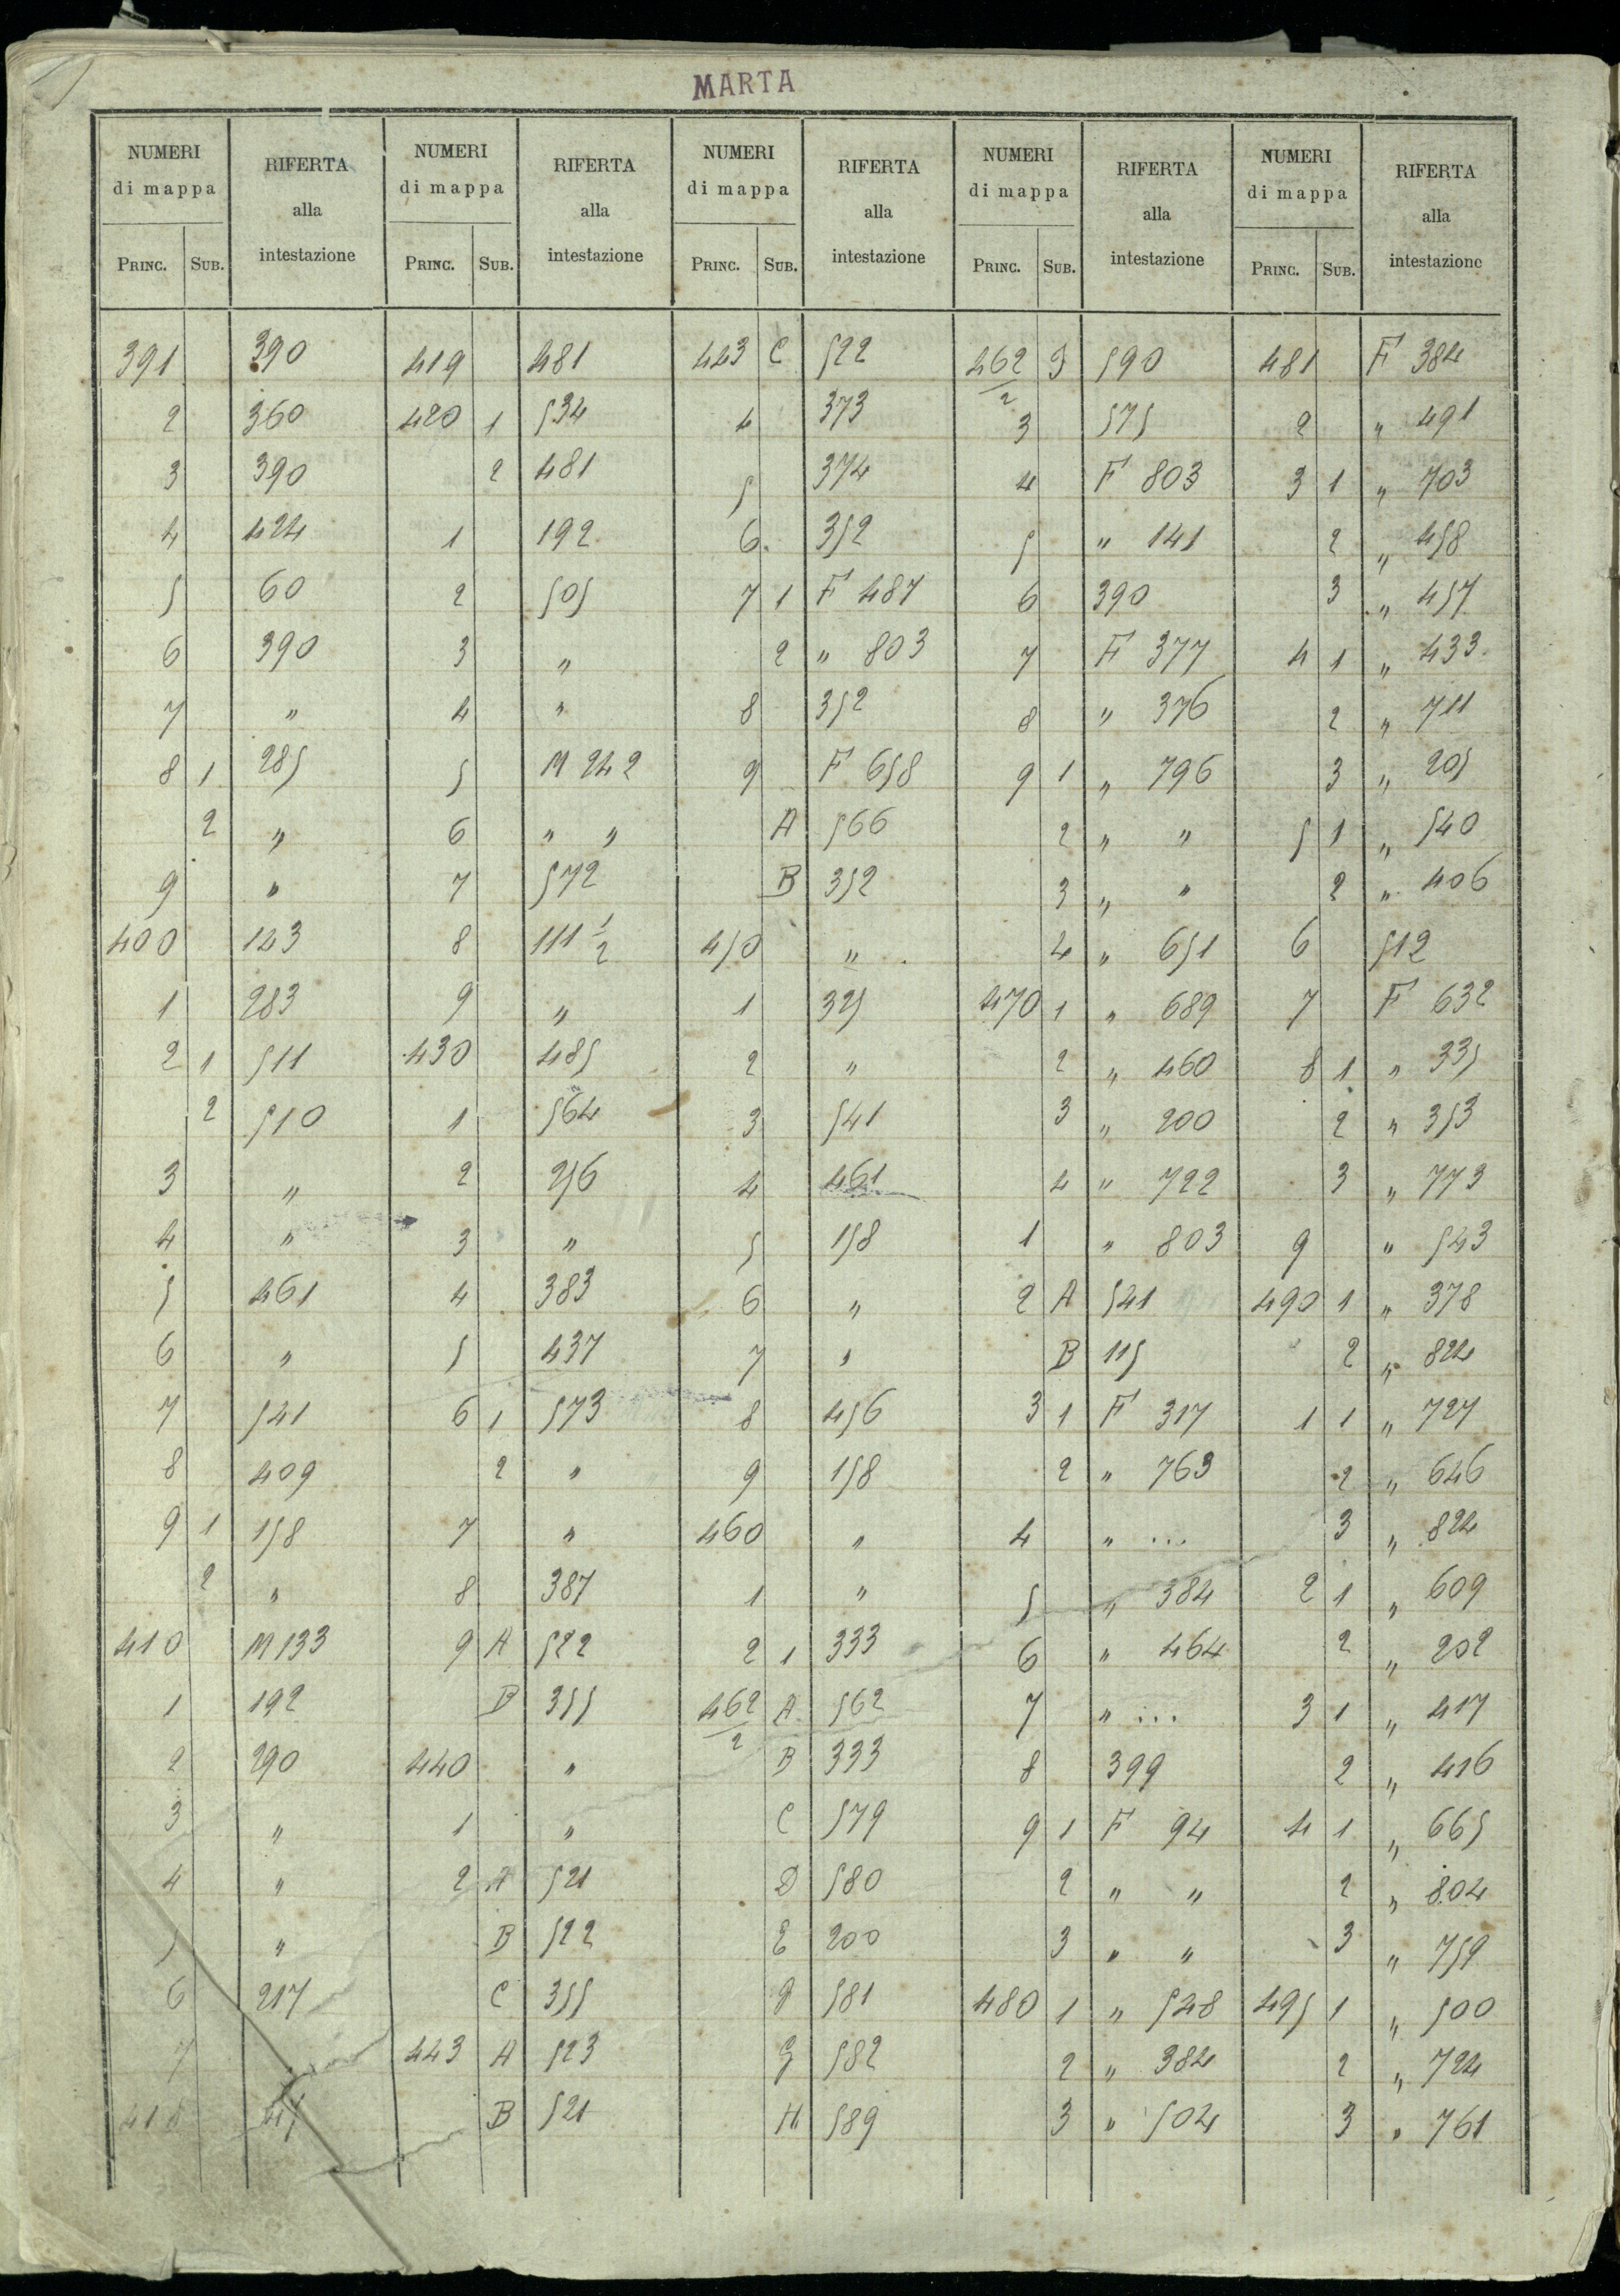 MARTA
NUMERI di mappa | RIFERTA alla intestazione | NUMERI di mappa | RIFERTA alla intestazione | NUMERI di mappa | RIFERTA alla intestazione | NUMERI di mappa | RIFERTA alla intestazione | NUMERI di mappa | RIFERTA alla intestazione
PRINC. | SUB. | | PRINC. | SUB. | | PRINC. | SUB. | | PRINC. | SUB. | | PRINC. | SUB. |
391 | | 390 | 419 | | 481 | 443 | C | 522 | 462/2 | I | 590 | 481 | | F 384
2 | | 360 | 420 | 1 | 534 | 4 | | 373 | 3 | | 575 | 2 | | " 491
3 | | 390 | | 2 | 481 | 5 | | 374 | 4 | | F 803 | 3 | 1 | " 703
4 | | 424 | 1 | | 192 | 6. | | 352 | 5 | | " 141 | | 2 | " 458
5 | | 60 | 2 | | 505 | 7 | 1 | F 487 | 6 | | 390 | | 3 | " 457
6 | | 390 | 3 | | " | | 2 | " 803 | 7 | | F 377 | 4 | 1 | " 433
7 | | " | 4 | | " | 8 | | 352 | 8 | | " 376 | | 2 | " 711
8 | 1 | 285 | 5 | | M 242 | 9 | | F 658 | 9 | 1 | " 796 | | 3 | " 205
| 2 | " | 6 | | " " | | A | 566 | | 2 | " " | 5 | 1 | " 540
9 | | " | 7 | | 572 | | B | 352 | | 3 | " " | | 2 | " 406
400 | | 143 | 8 | | 111 1/2 | 450 | | " | | 4 | " 651 | 6 | | 512
1 | | 283 | 9 | | " | 1 | | 325 | 470 | 1 | " 689 | 7 | | F 632
2 | 1 | 511 | 430 | | 485 | 2 | | " | | 2 | " 460 | 8 | 1 | " 335
| 2 | 510 | 1 | | 564 | 3 | | 541 | | 3 | " 200 | | 2 | " 353
3 | | " | 2 | | 256 | 4 | | 461 | | 4 | " 722 | | 3 | " 773
4 | | " | 3 | | " | 5 | | 158 | 1 | | " 803 | 9 | | " 543
5 | | 461 | 4 | | 383 | 6 | | " | 2 | A | 541 | 490 | 1 | " 378
6 | | " | 5 | | 437 | 7 | | " | | B | 115 | | 2 | " 824
7 | | 541 | 6 | 1 | 573 | 8 | | 456 | 3 | 1 | F 317 | 1 | 1 | " 727
8 | | 409 | | 2 | " | 9 | | 158 | | 2 | " 763 | | 2 | " 646
9 | 1 | 158 | 7 | | " | 460 | | " | 4 | | " ... | | 3 | " 824
| 2 | " | 8 | | 387 | 1 | | " | 5 | | " 384 | 2 | 1 | " 609
410 | | M 133 | 9 | A | 522 | 2 | 1 | 333 | 6 | | " 464 | | 2 | " 202
1 | | 192 | | B | 355 | 462/2 | A | 562 | 7 | | " ... | 3 | 1 | " 417
2 | | 290 | 440 | | " | | B | 333 | 8 | | 399 | | 2 | " 416
3 | | " | 1 | | " | | C | 579 | 9 | 1 | F 94 | 4 | 1 | " 665
4 | | " | 2 | A | 521 | | D | 580 | | 2 | " " | | 2 | " 804
5 | | " | | B | 522 | | E | 200 | | 3 | " " | | 3 | " 759
6 | | 217 | | C | 355 | | | 581 | 480 | 1 | " 548 | 495 | 1 | " 500
7 | | | 443 | A | 523 | | G | 582 | | 2 | " 384 | | 2 | " 724
418 | | | | B | 521 | | H | 589 | | 3 | " 504 | | 3 | " 761